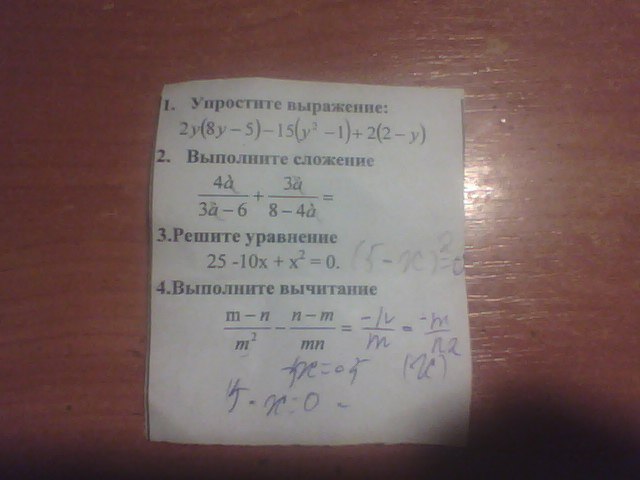 1. Упростите выражение:
2y(8y – 5) – 15(y² – 1) + 2(2 – y)
2. Выполните сложение
4à/3à – 6 + 3à/8 – 4à =
3.Решите уравнение
25 -10x + x² = 0. (5 - x)² = 0
4.Выполните вычитание
m – n/m² – n – m/mn =
5 - x = 0